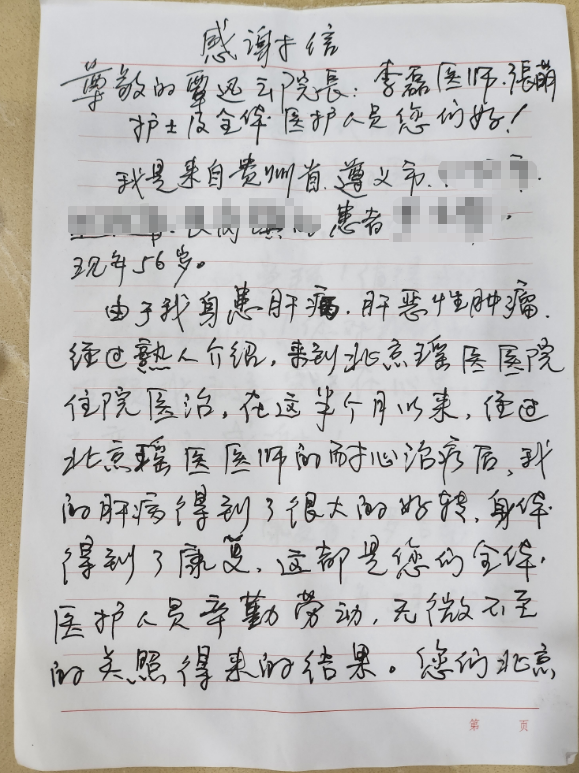 感谢信
尊敬的覃迅云院長：李磊医师.張萌
护士及全体医护人员您们好！
我是来自贵州省.遵义市.
患者
现年56岁。
由于我身患肝病.肝恶性肿瘤.
经过熟人介绍，来到北京瑶医医院
住院医治，在这半个月以来，经过
北京瑶医医师的耐心治疗后，我
的肝病得到了很大的好转，身体
得到了康复，这都是您们全体
医护人员辛勤劳动，无微不至
的关照得来的结果。您们北京
第 页